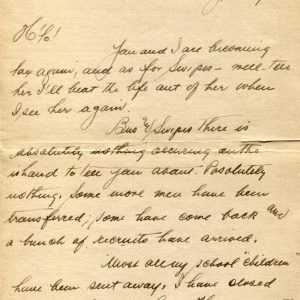 H'lo!
You and I are becoming
lax again, and as for Swipes – well tell
her I'll beat the life out of her when
I see her again.
Bus Swipes there is
absolutely nothing occuring on the
island to tell you about. Posolutely
nothing. Some more men have been
transferred, some have come back and
a bunch of recruits have arrived.
Most all my school "children"
have been sent away. I have closed